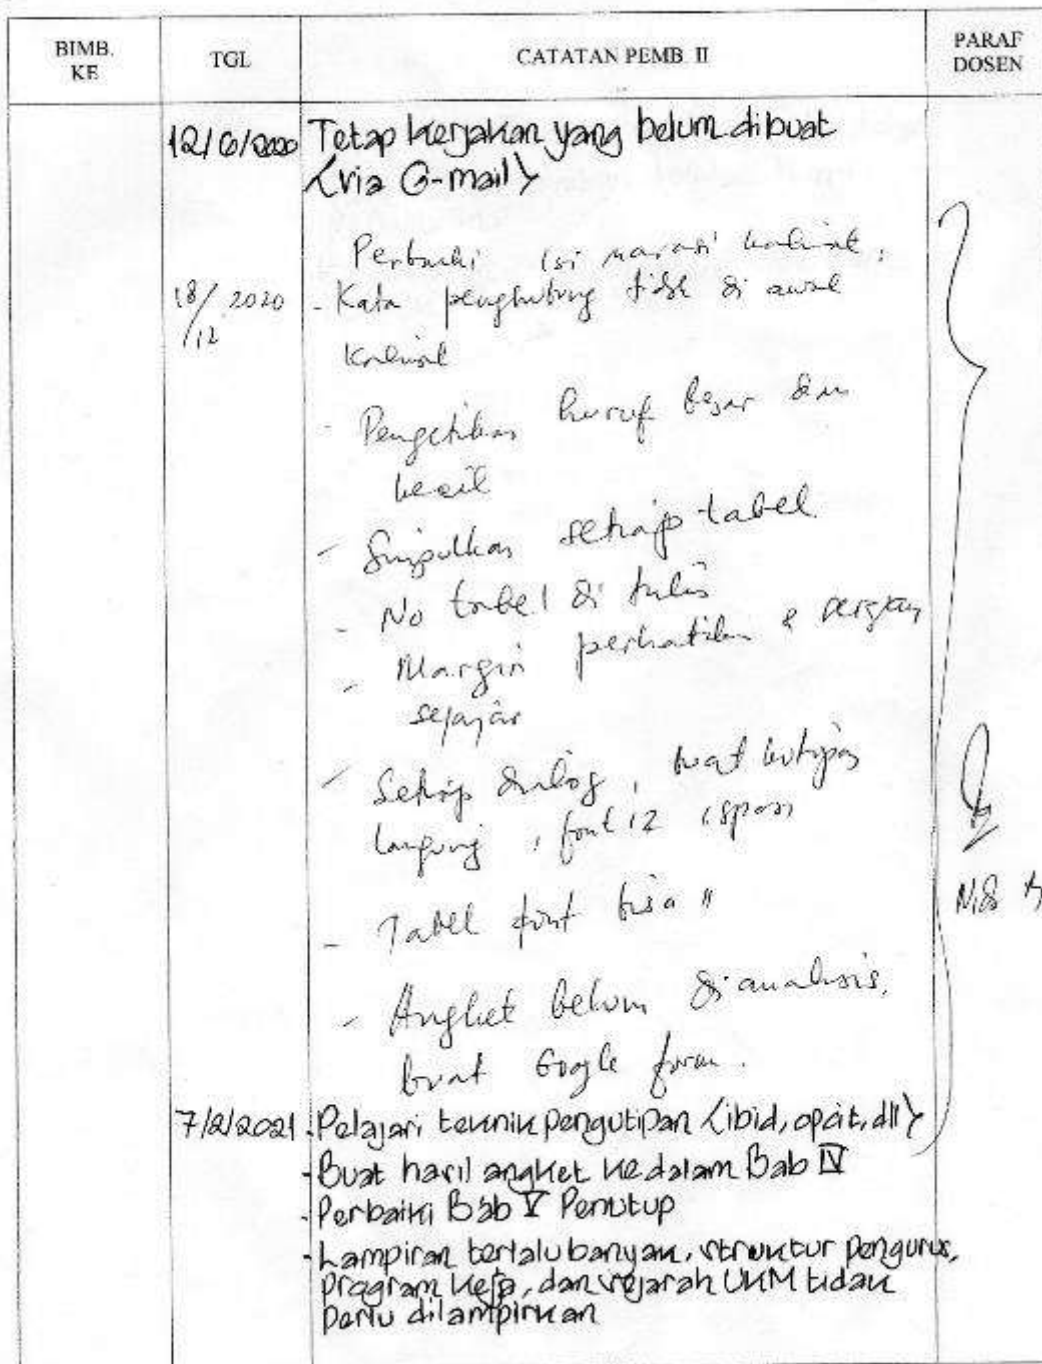 BIMB. KE TGL CATATAN PEMB. II PARAF DOSEN
12/6/2020 Tetap kerjakan yang belum dibuat
(via G-mail)
Perbaiki isi narasi kalimat.
18/12 2020 - Kata penghubung tidak di awal
kalimat
- Pengetikan huruf besar dan
kecil
- Simpulkan setiap tabel
- No tabel di tulis
- Margin perhatikan &
sejajar
- Setiap dialog, buat kutipan
langsung, font 12 1 spasi
- Tabel font bisa 11
- Angket belum dianalisis,
buat Google form.
7/2/2021 - Pelajari teknik pengutipan (ibid, opcit, dll)
- Buat hasil angket kedalam Bab IV
- Perbaiki Bab V Penutup
- Lampiran terlalu banyak, struktur pengurus,
program kerja, dan sejarah UKM tidak
perlu dilampirkan